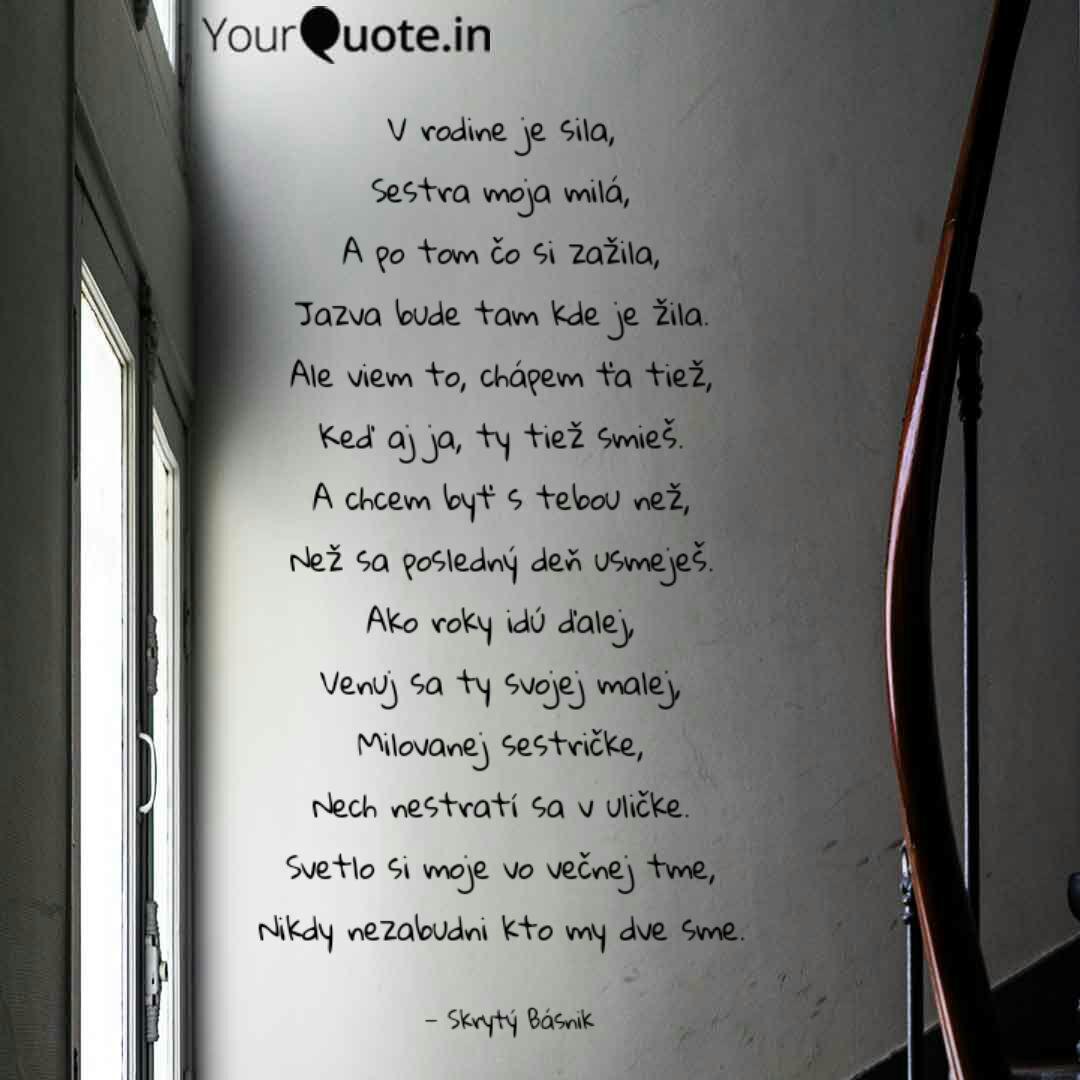 YourQuote.in
V rodine je sila,
Sestra moja milá,
A po tom čo si zažila,
Jazva bude tam kde je žila.
Ale viem to, chápem ťa tiež,
Keď aj ja, ty tiež smieš.
A chcem byť s tebou než,
Než sa posledný deň usmeješ.
Ako roky idú ďalej,
Venuj sa ty svojej malej,
Milovanej sestričke,
Nech nestratí sa v uličke.
Svetlo si moje vo večnej tme,
Nikdy nezabudni kto my dve sme.
- Skrytý Básnik